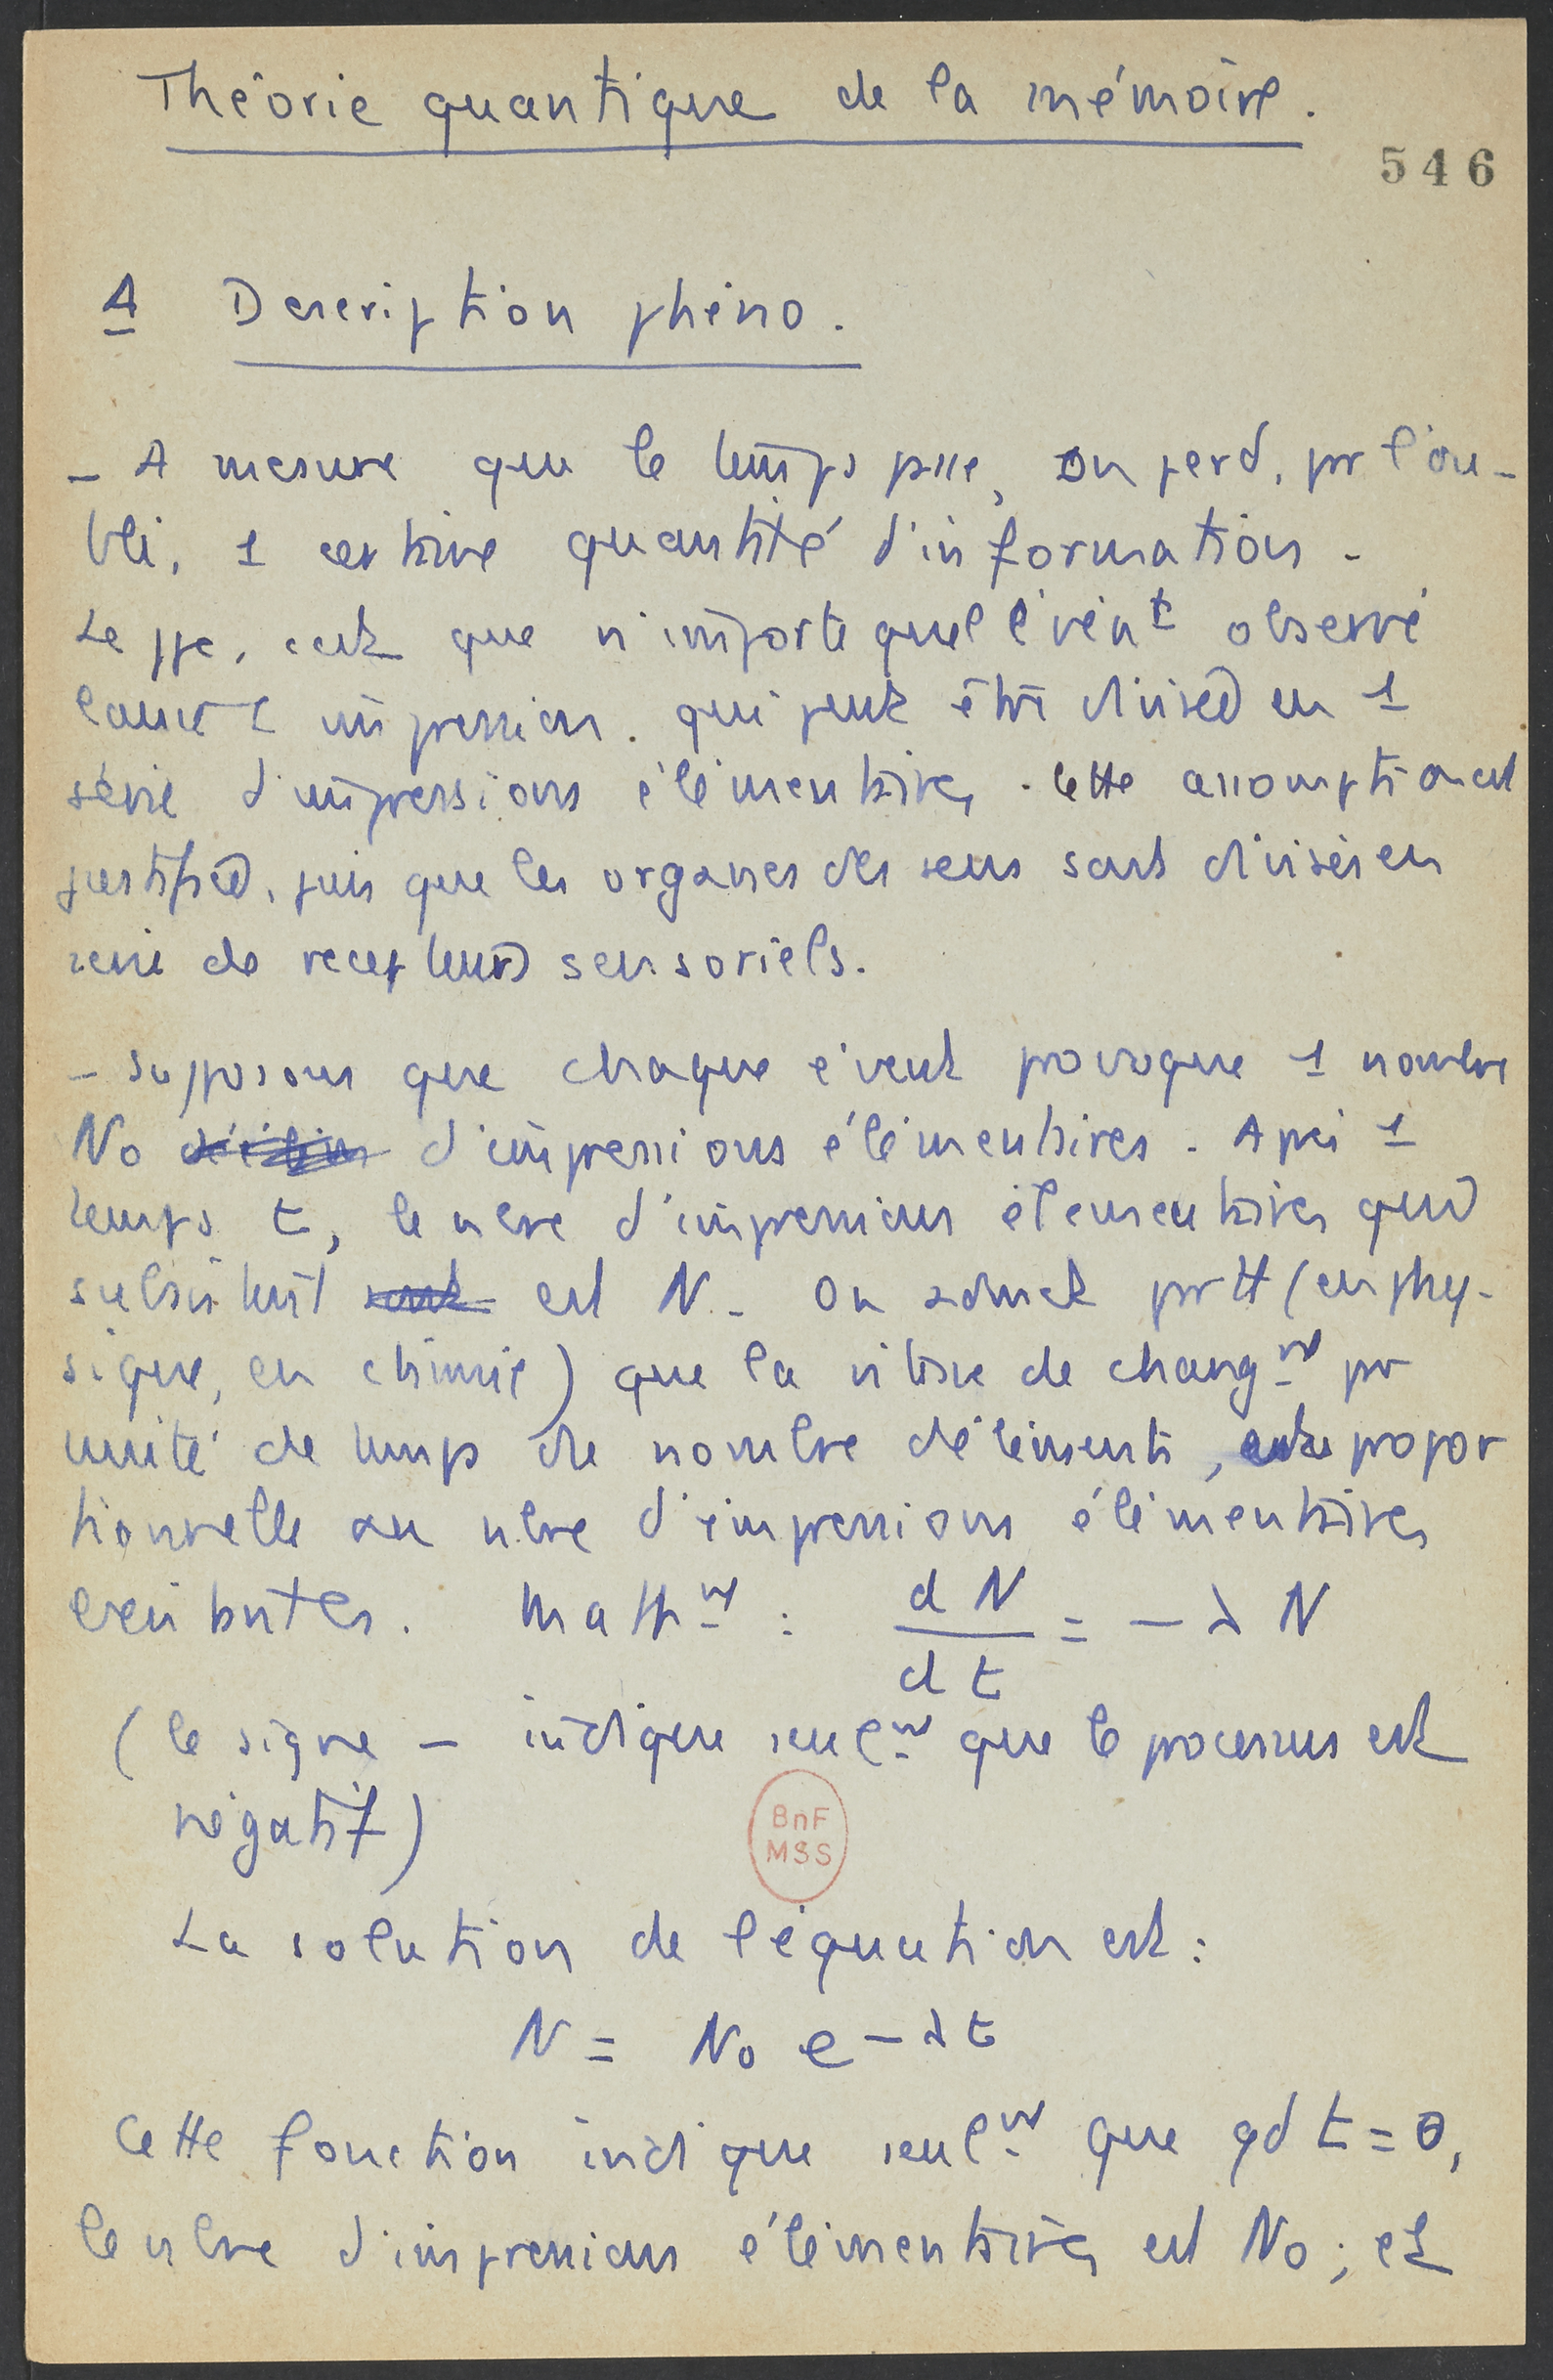 Théorie quantique de la mémoire.
546
A Description phéno.
- A mesure que le temps passe, on perd, pr l'ou-
bli, 1 certaine quantité d'information.
Le ppe, c'est que n'importe quel évént observé
cause 1 impression. qui peut être divisée en 1
série d'impressions élémentaires. Cette assomption est
justifiée, puis que les organes des sens sont divisés en
série de récepteurs sensoriels.
- Supposons que chaque évent provoque 1 nombre
No d'impressions élémentaires. Après 1
temps t, le nbre d'impressions élémentaires qui
subsistent est N. On admet prtt (en phy-
sique, en chimie) que la vitesse de changnt pr
unité de temps du nombre d'éléments, est propor
tionnelle au nbre d'impressions élémentaires
existantes. Mathnt : dN/dt = - λ N
(le signe - indique seulnt que le processus est
négatif)
BnF
MSS
La solution de l'équation est :
N = No e - λt
Cette fonction indique seulnt que qd t = 0,
le nbre d'impressions élémentaires est No ; et